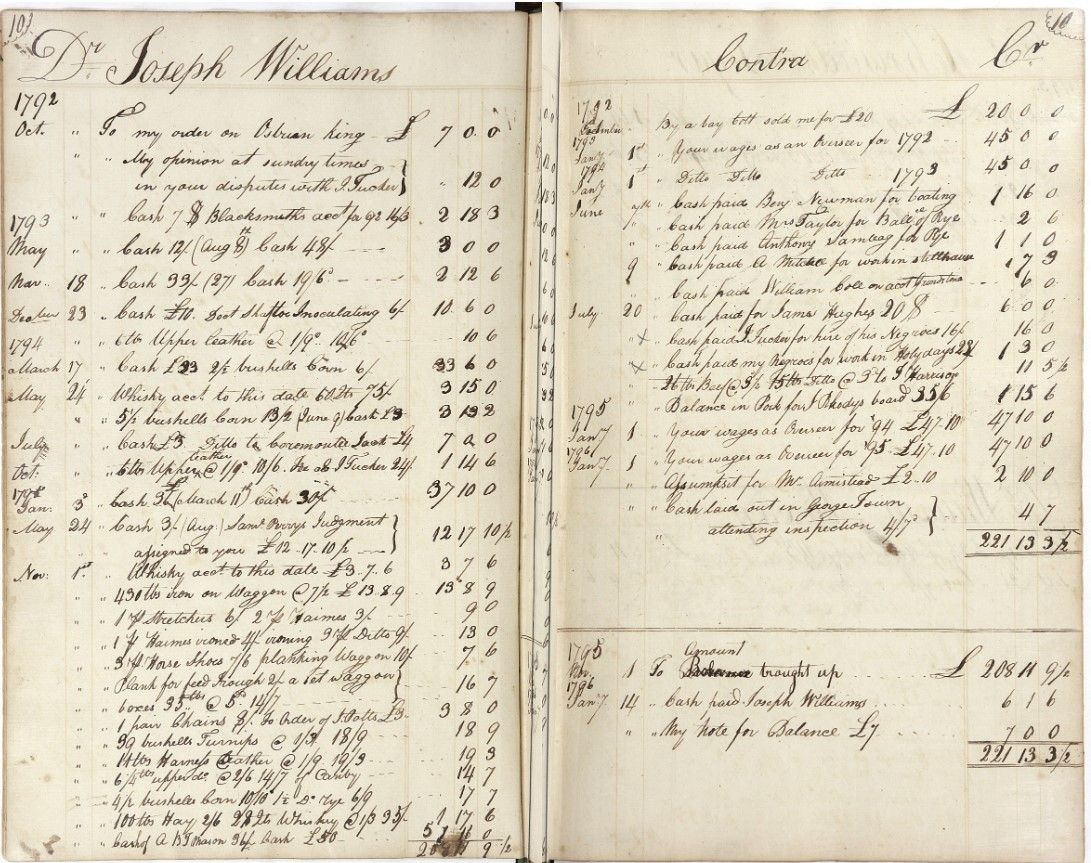 103
Dr Joseph Williams
1792
Oct. " To my order on Osburn King £ 7 0 0
" " May opinion at sundry times
in your disputes with J. Tucker } " 12 0
1793 " Cash 7 $ Blacksmiths acct for 92 16/3 2 18 3
May " Cash 12/ (Aug 8th) Cash 48/ 3 0 0
Nov. 18 " Cash 33/ (27) Cash 19/6 2 12 6
December 23 " Cash £10. Doct Shaftor Inoculating 6/ 10 6 0
1794 " 6 lbs Upper Leather @ 1/9 10/6 10 6
March 17 " Cash £33 2/2 bushells Corn 6/ 33 6 0
May 24 " Whisky acct. to this date 60 Qts 75/ 3 15 0
" " 5/2 bushells Corn 13/2 (June 9) Cash £3 3 13 2
July " Cash £3 Ditto to £4 7 0 0
Oct. " 6 lbs Upper leather @ 1/9 10/6. J Tucker 24/ 1 14 6
1795
Jan. 3d Cash 36 (March 11th) Cash 30/ 37 10 0
May 24 " Cash 3/ (Aug) Saml Perrys Judgment
assigned to you £12.17.10/2 } 12 17 10/2
Nov. 1st " Whisky acct. to this date £3.7.6 3 7 6
" " 430 lbs iron on Waggon @ 7/2 £13.8.9 13 8 9
" " 1 pr Stretchers 6/ 2 pr Haimes 3/ 9 0
" " 1 pr Haimes ironed 4/ ironing 3 pr Ditto 9/ 13 0
" " 3 pr Horse Shoes 7/6 planking Waggon 10/ 7 6
" " Plank for feed Trough 2/ a set waggon
boxes 35 lbs @ 5d 14/7 } 16 7
" " 1 pair Chains 8/. To Order of J. Potts £3 3 8 0
" " 39 bushells Turnips @ 1/3 18/9 18 9
" " 11 lbs Harness Leather @ 1/9 19/3 19 3
" " 6/4 lbs upper do. @ 2/6 14/7 of Canby 14 7
" " 4/2 bushells Corn 10/10 1/2 Do Rye 6/9 17 7
" " 100 lbs Hay 2/6 28 Qts Whiskey @ 1/3 35/ 1 17 6
" " Cash of A B T Mason 36/ Cash £50 51 11 0
208 11 9 1/2
10
Contra Cr
1792
December By a bay Colt sold me for £20 £ 20 0 0
1793
Jany 1st " Your wages as an Overseer for 1792 45 0 0
1794
Jany 1st " Ditto Ditto Ditto 1793 45 0 0
June 7th " Cash paid Benj Newman for boating 1 16 0
" Cash paid Mrs Taylor for Balce of Rye 2 6
" Cash paid Anthony for Rye 1 1 0
9 " Cash paid A Mitchell for work in stillhouse 1 7 3
" Cash paid William Cole on acct Grindstone 6 0
July 20 " Cash paid for James Hughes 20 $ 6 0 0
" x Cash paid J. Tucker for hire of his Negroes 16/ 16 0
" x Cash paid my Negroes for work in Holydays 23/ 1 3 0
" 26 lbs Beef @ 3/2 15 lbs Ditto @ 3 to J Harrison 11 5/2
" Balance in Pork for J Rhodys board 35/6 1 15 6
1795
Jany 1 " Your wages as Overseer for '94 £47.10 47 10 0
1796
Jany 1 " Your wages as Overseer for '95 £47.10 47 10 0
" Assumksit for Mr. Armistead £2.10 2 10 0
" " Cash laid out in George Town
" attending inspection 4/7 } 4 7
221 13 3/2
1795
1 To Amount brought up £ 208 11 9/2
1796
Jany 14 " Cash paid Joseph Williams 6 1 6
" " My Note for Balance £7 7 0 0
221 13 3/2